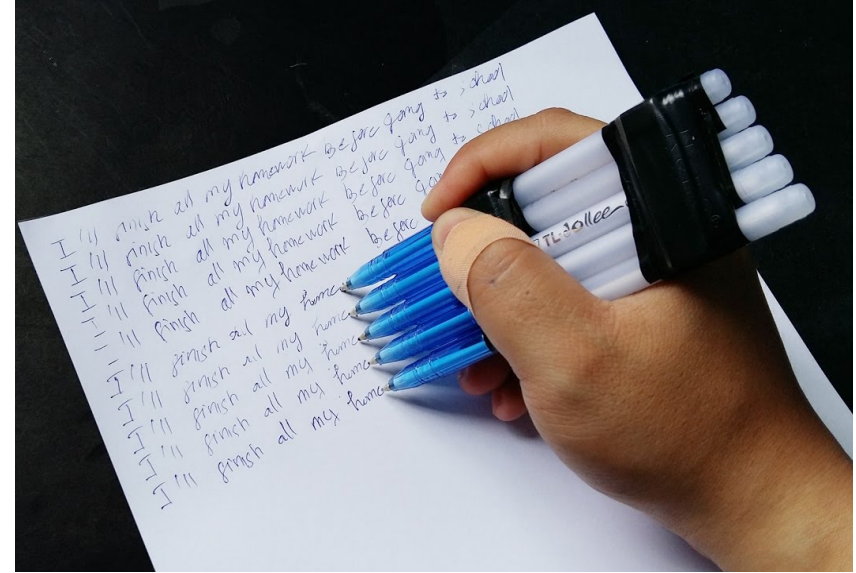 I'll finish all my homework Before going to school
I'll finish all my homework Before going to school
I'll finish all my homework Before going to school
I'll finish all my homework Before going
I'll finish all my homework Before
I'll finish all my home
I'll finish all my home
I'll finish all my home
I'll finish all my home
I'll finish all my home
TL-Jollee